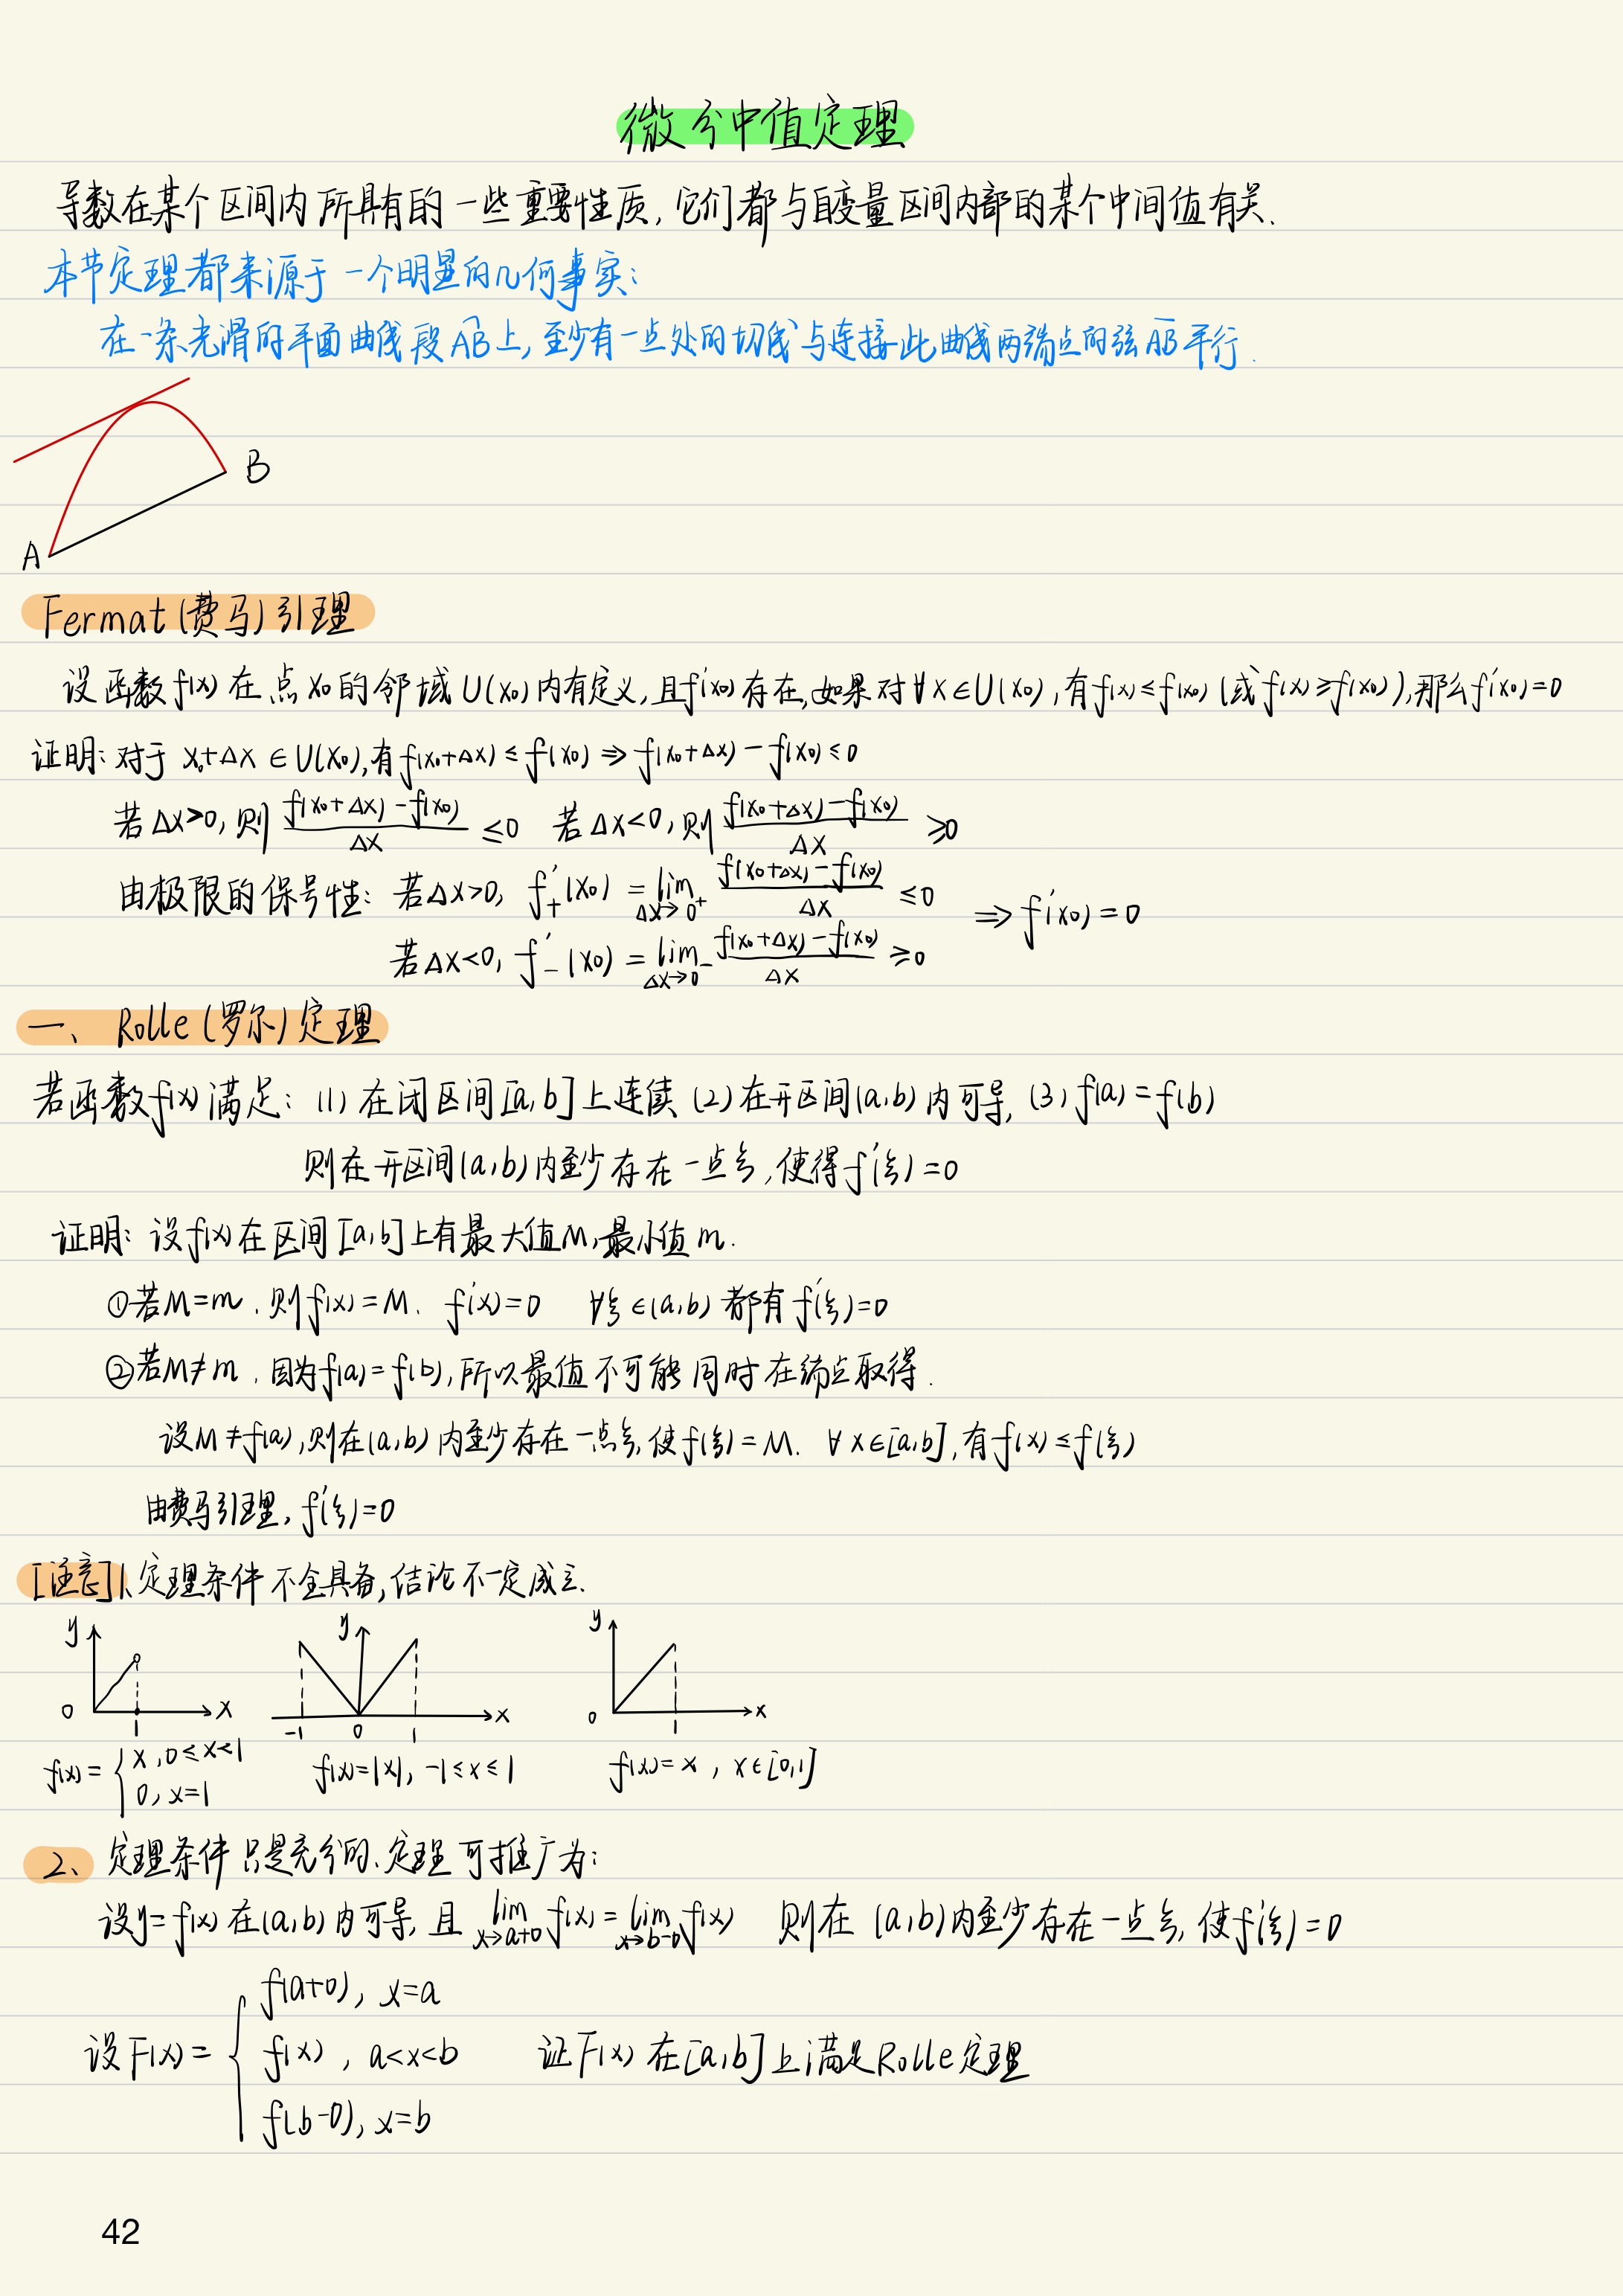 微分中值定理
导数在某个区间内所具有的一些重要性质,它们都与自变量区间内部的某个中间值有关.
本节定理都来源于一个明显的几何事实:
在一条光滑的平面曲线段AB上,至少有一点处的切线与连接此曲线两端点的弦AB平行.
B
A
Fermat(费马)引理
设函数f(x)在点x₀的邻域U(x₀)内有定义,且f'(x₀)存在,如果对∀x∈U(x₀),有f(x)≤f(x₀)(或f(x)≥f(x₀)),那么f'(x₀)=0
证明:对于x₀+Δx∈U(x₀),有f(x₀+Δx)≤f(x₀)⇒f(x₀+Δx)-f(x₀)≤0
若Δx>0,则 (f(x₀+Δx)-f(x₀))/Δx ≤0 若Δx<0,则 (f(x₀+Δx)-f(x₀))/Δx ≥0
由极限的保号性:若Δx>0, f'₊(x₀)=lim_{Δx→0⁺} (f(x₀+Δx)-f(x₀))/Δx ≤0 ⇒f'(x₀)=0
若Δx<0, f'₋(x₀)=lim_{Δx→0⁻} (f(x₀+Δx)-f(x₀))/Δx ≥0
一、Rolle(罗尔)定理
若函数f(x)满足:(1)在闭区间[a,b]上连续(2)在开区间(a,b)内可导,(3)f(a)=f(b)
则在开区间(a,b)内至少存在一点ξ,使得f'(ξ)=0
证明:设f(x)在区间[a,b]上有最大值M,最小值m.
①若M=m,则f(x)=M. f'(x)=0 ∀ξ∈(a,b)都有f'(ξ)=0
②若M≠m,因为f(a)=f(b),所以最值不可能同时在端点取得.
设M≠f(a),则在(a,b)内至少存在一点ξ,使f(ξ)=M. ∀x∈[a,b],有f(x)≤f(ξ)
由费马引理,f'(ξ)=0
[注意]1、定理条件不全具备,结论不一定成立.
y 0 1 x
y -1 0 1 x
y 0 1 x
f(x)={x,0≤x<1
0,x=1
f(x)=|x|,-1≤x≤1
f(x)=x,x∈[0,1]
2、定理条件只是充分的、定理可推广为:
设y=f(x)在(a,b)内可导,且 lim_{x→a+0} f(x)=lim_{x→b-0} f(x) 则在(a,b)内至少存在一点ξ,使f'(ξ)=0
f(a+0),x=a
设F(x)={f(x),a<x<b 证F(x)在[a,b]上满足Rolle定理
f(b-0),x=b
42